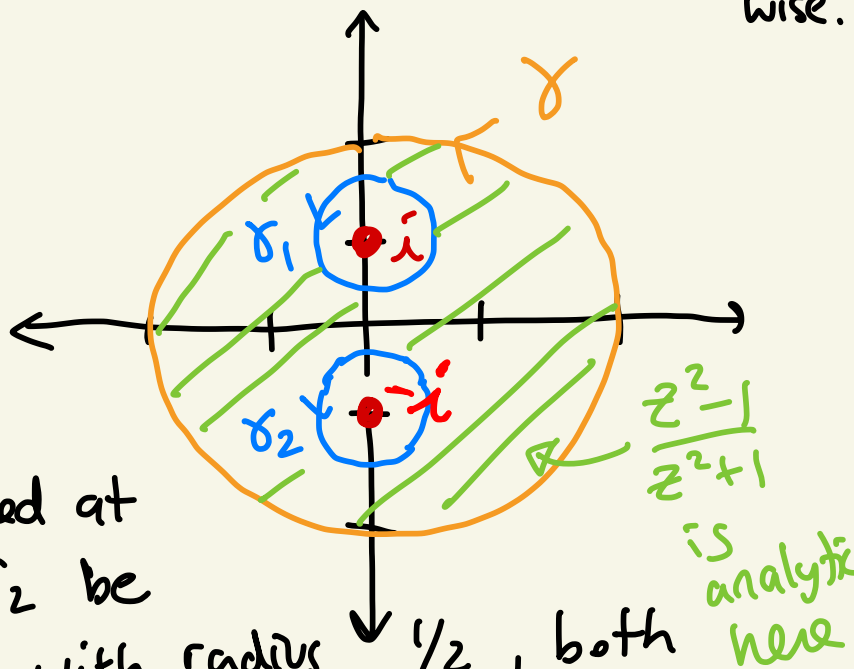 wise.
γ
γ₁
i
-i
γ₂
z²-1
z²+1
is
analytic
here
ed at
2 be
with radius 1/2, both